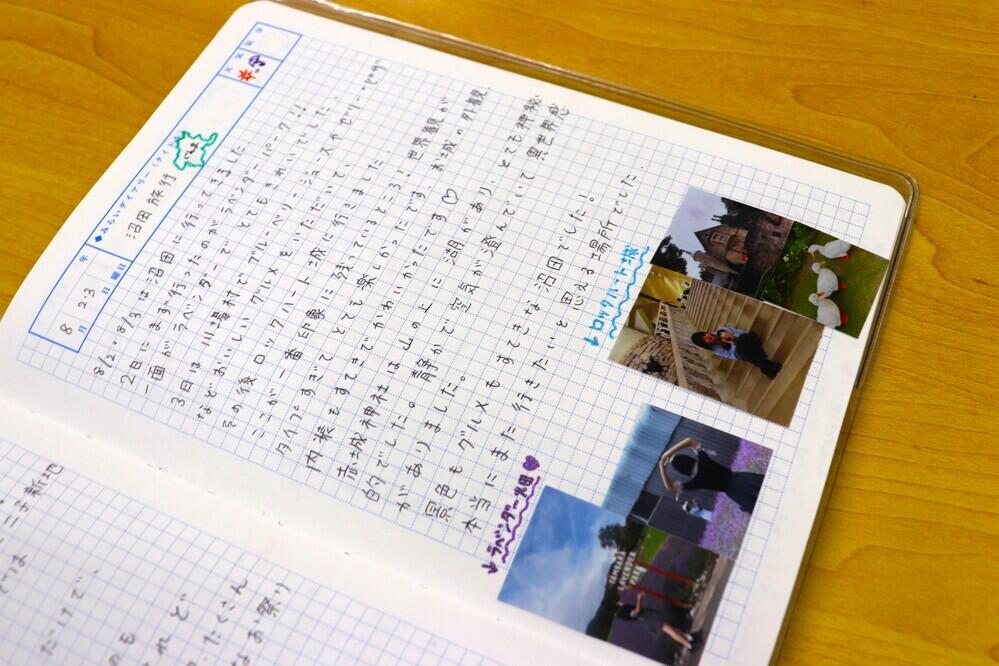 年
8月 2.3日 曜日
◆みらいダイアリー(タイトル
沼田旅行
ぐんま
8/2・8/3は沼田に行ってきました
2日にまず行ったのがラベンダーパーク!!
一面がラベンダーで とてもきれいでした
3日は川場村でブルーベリージュースやゼリー・ピザ
などおいしいグルメをいただいて、
その後ロックハート城に行きました。
ここが一番印象に残っているところ!世界観が
タイプすぎてとても楽しかったです。お城の外観、
内装もすてきでかわいかったです♡
赤城神社は山の上に湖があり、とても神秘
的でした。静かで空気が澄んでいて異世界感
がありました。
景色もグルメもすてきな沼田でした!
本当にまた行きたいと思える場所でした
↓ロックハート城
↓ラベンダー畑♥
ニ子新地
だけで、
のも
れど
たくさん
なお祭り